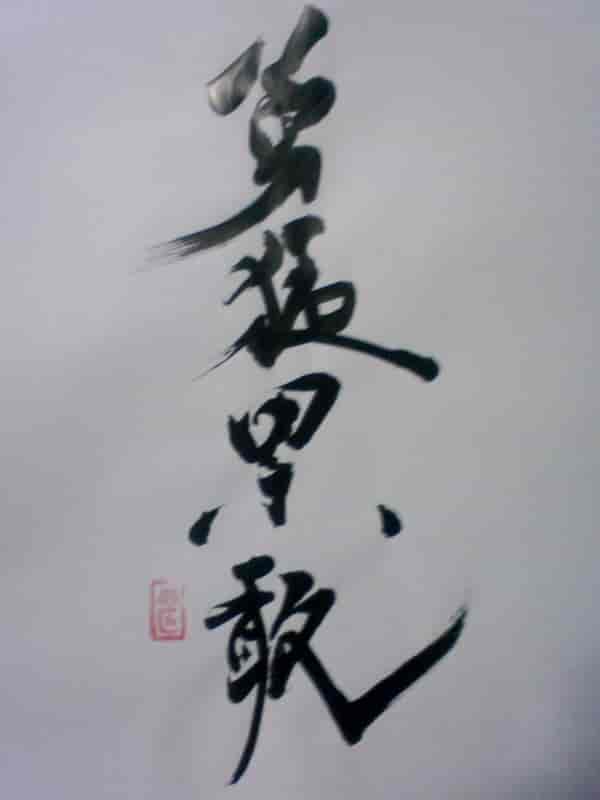 勇猛果敢